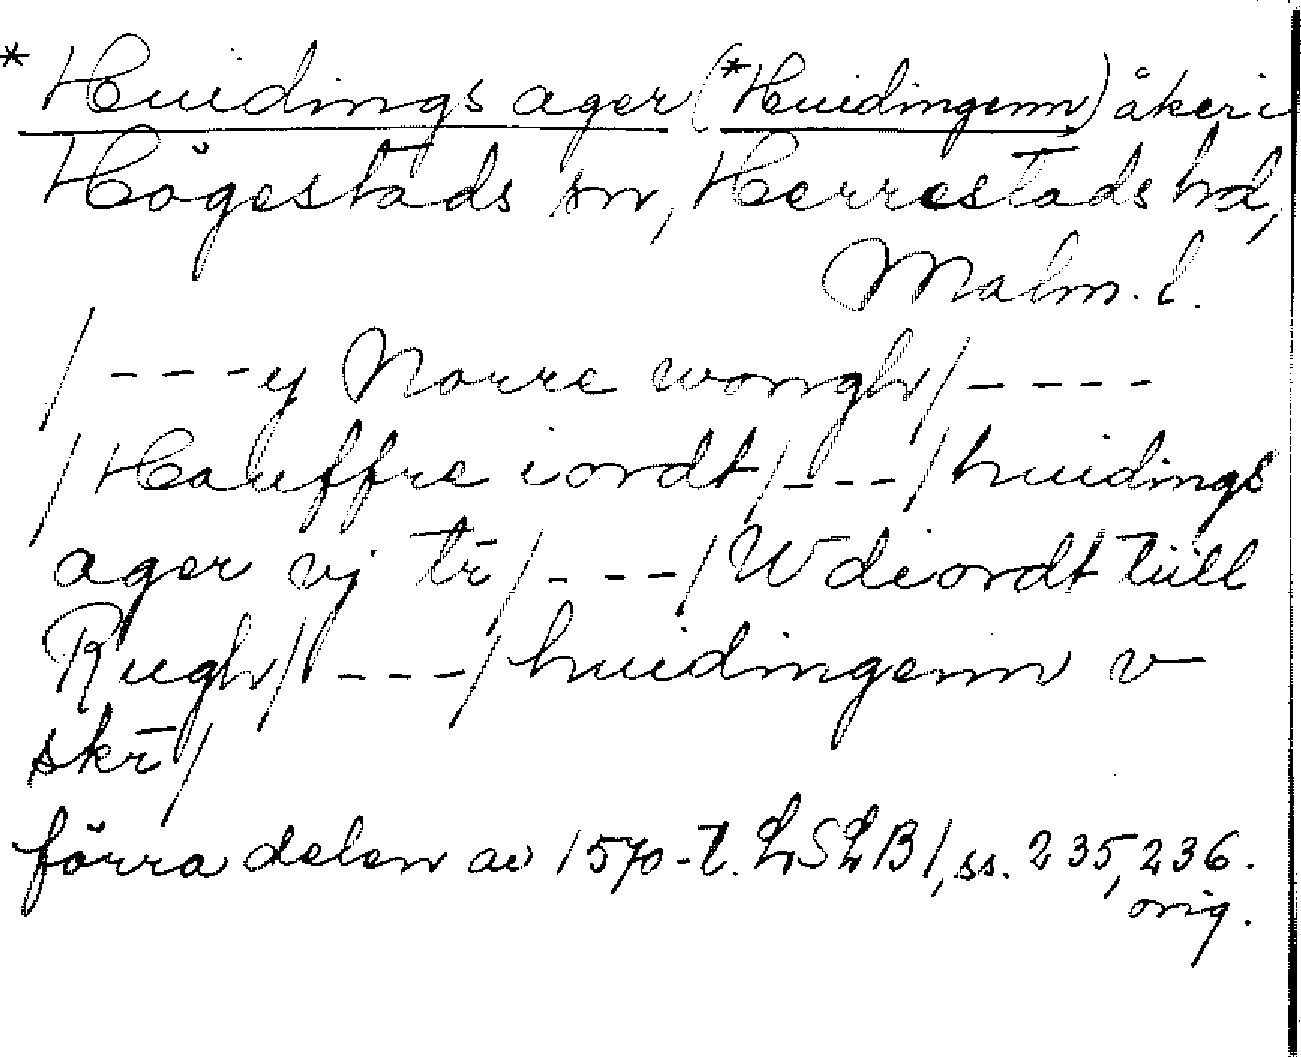 * Huidings ager (*Huidingenn) åker i
Högestads sn, Herrestads hd,
Malm. l.
/ - - - y Norre wongh / - - - -
/ Hauffre iordt / - - - / huidings
ager vj tr̄ / - - - / Wdiordt tiill
Rugh / - - - / huidingenn v
skr̄ /
förra delen av 1570-t. LSLB 1, ss. 235, 236.
orig.